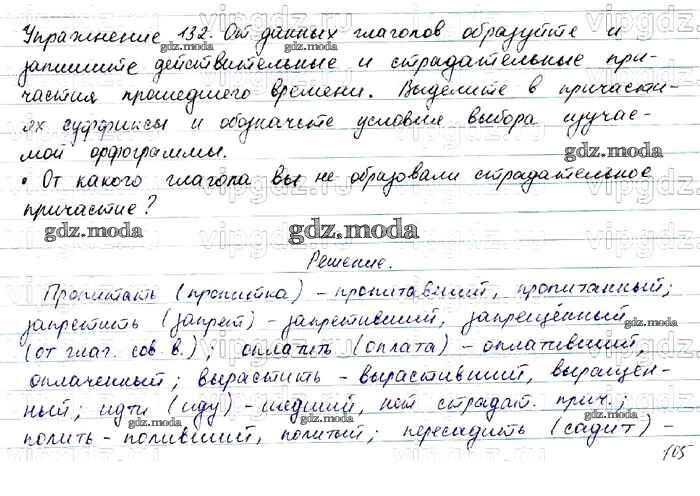 Упражнение 132. От данных глаголов образуйте и
gdz.moda gdz.moda
запишите действительные и страдательные при-
частия прошедшего времени. Выделите в причасти-
ях суффиксы и обозначьте условие выбора изучае-
мой орфограммы. gdz.moda
• От какого глагола вы не образовали страдательное
причастие?
gdz.moda gdz.moda
Решение.
Пропитать (пропитка) – пропитавший, пропитанный;
запретить (запрет) – запретивший, запрещённый gdz.moda
(от глаг. сов. в.); оплатить (оплата) – оплативший,
gdz.moda gdz.moda
оплаченный; вырастить – вырастивший, выращен-
ный; идти (иду) – шедший, нет страдат. прич.;
gdz.moda gdz.moda
полить – поливший, политый; пересадить (садит) –
gdz.moda
105